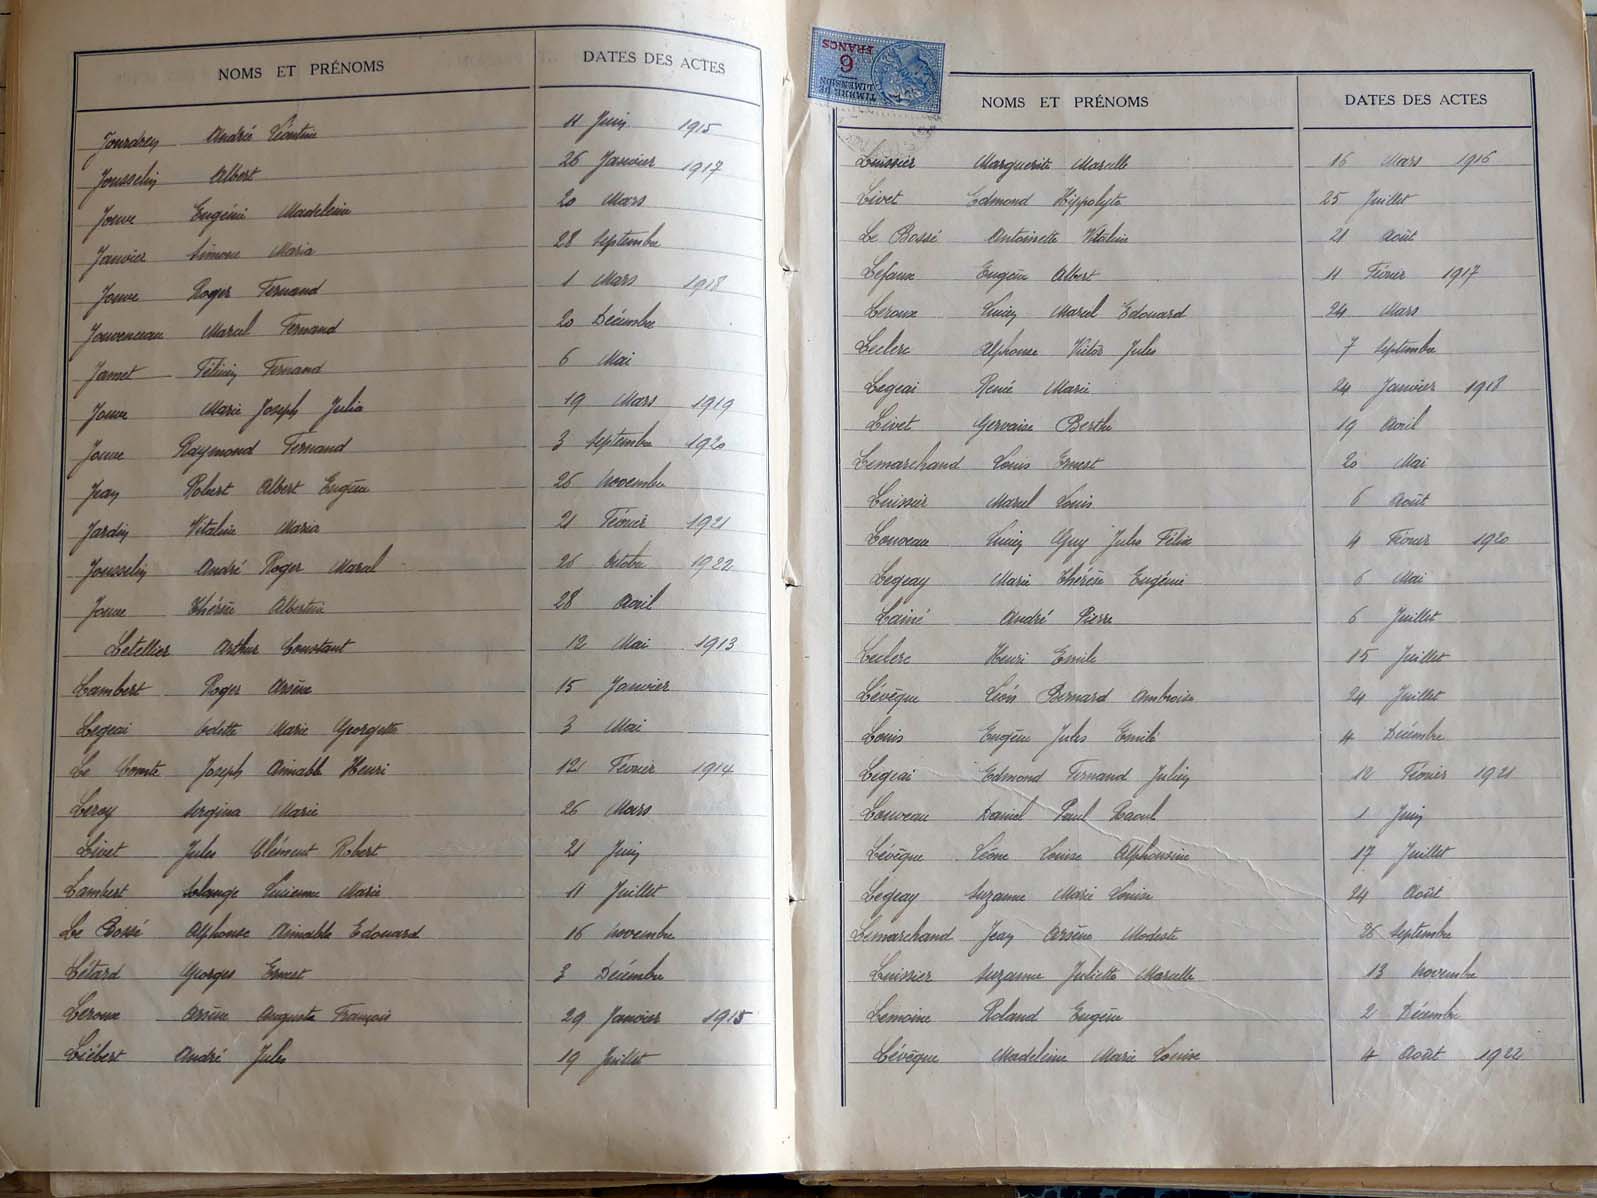 NOMS ET PRÉNOMS DATES DES ACTES
Jourdren André 11 Juin 1915
Jousselin Albert 26 Janvier 1917
Jouve Eugénie Madeleine 20 Mars
Janvier Simone Maria 28 Septembre
Jouve Roger Fernand 1 Mars 1918
Jouvenceau Marcel Fernand 20 Décembre
Jamet Félicien Fernand 6 Mai
Jouve Marie Joseph Julia 19 Mars 1919
Jouve Raymond Fernand 3 Septembre 1920
Jean Robert Albert Eugène 26 Novembre
Jardin Vitaline Maria 21 Février 1921
Jousselin André Roger Marcel 26 Octobre 1922
Jouve Thérèse Albertine 28 Avril
Letellier Arthur Constant 12 Mai 1913
Lambert Roger Arsène 15 Janvier
Legeai Odette Marie Georgette 3 Mai
Le Comte Joseph Aimable Henri 12 Février 1914
Leroy Sergina Marie 26 Mars
Livet Jules Clément Robert 21 Juin
Lambert Solange Lucienne Marie 11 Juillet
Le Bossé Alphonse Aimable Edouard 16 Novembre
Létard Georges Ernest 3 Décembre
Leroux Arsène Auguste François 29 Janvier 1915
Liébert André Jules 19 Juillet
TIMBRE DE
DIMENSION
6
FRANCS
NOMS ET PRÉNOMS DATES DES ACTES
Luissier Marguerite Marcelle 16 Mars 1916
Livet Edmond Hippolyte 25 Juillet
Le Bossé Antoinette Vitaline 21 Août
Lefaux Eugène Albert 11 Février 1917
Leroux Lucien Marcel Edouard 24 Mars
Leclerc Alphonse Victor Jules 7 Septembre
Legeai René Marie 24 Janvier 1918
Livet Gervaise Berthe 19 Avril
Lemarchand Louis Ernest 20 Mai
Luissier Marcel Louis 6 Août
Louveau Lucien Guy Jules Félix 4 Février 1920
Legeay Marie Thérèse Eugénie 6 Mai
Lainé André Pierre 6 Juillet
Leclerc Henri Emile 15 Juillet
Lévêque Léon Bernard Ambroise 24 Juillet
Louis Eugène Jules Emile 4 Décembre
Legeai Edmond Fernand Julien 12 Février 1921
Louveau Daniel Paul Raoul 1 Juin
Lévêque Léone Louise Alphonsine 17 Juillet
Legeay Suzanne Marie Louise 24 Août
Lemarchand Jean Arsène Modeste 26 Septembre
Luissier Suzanne Juliette Marcelle 13 Novembre
Lemoine Roland Eugène 2 Décembre
Lévêque Madeleine Marie Louise 4 Août 1922